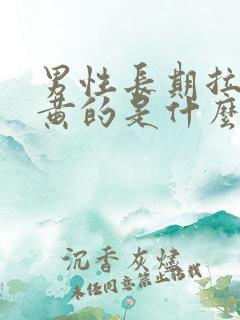 男性長期拉
黄的是什麼
沉香灰燼
未經同意禁止轉載